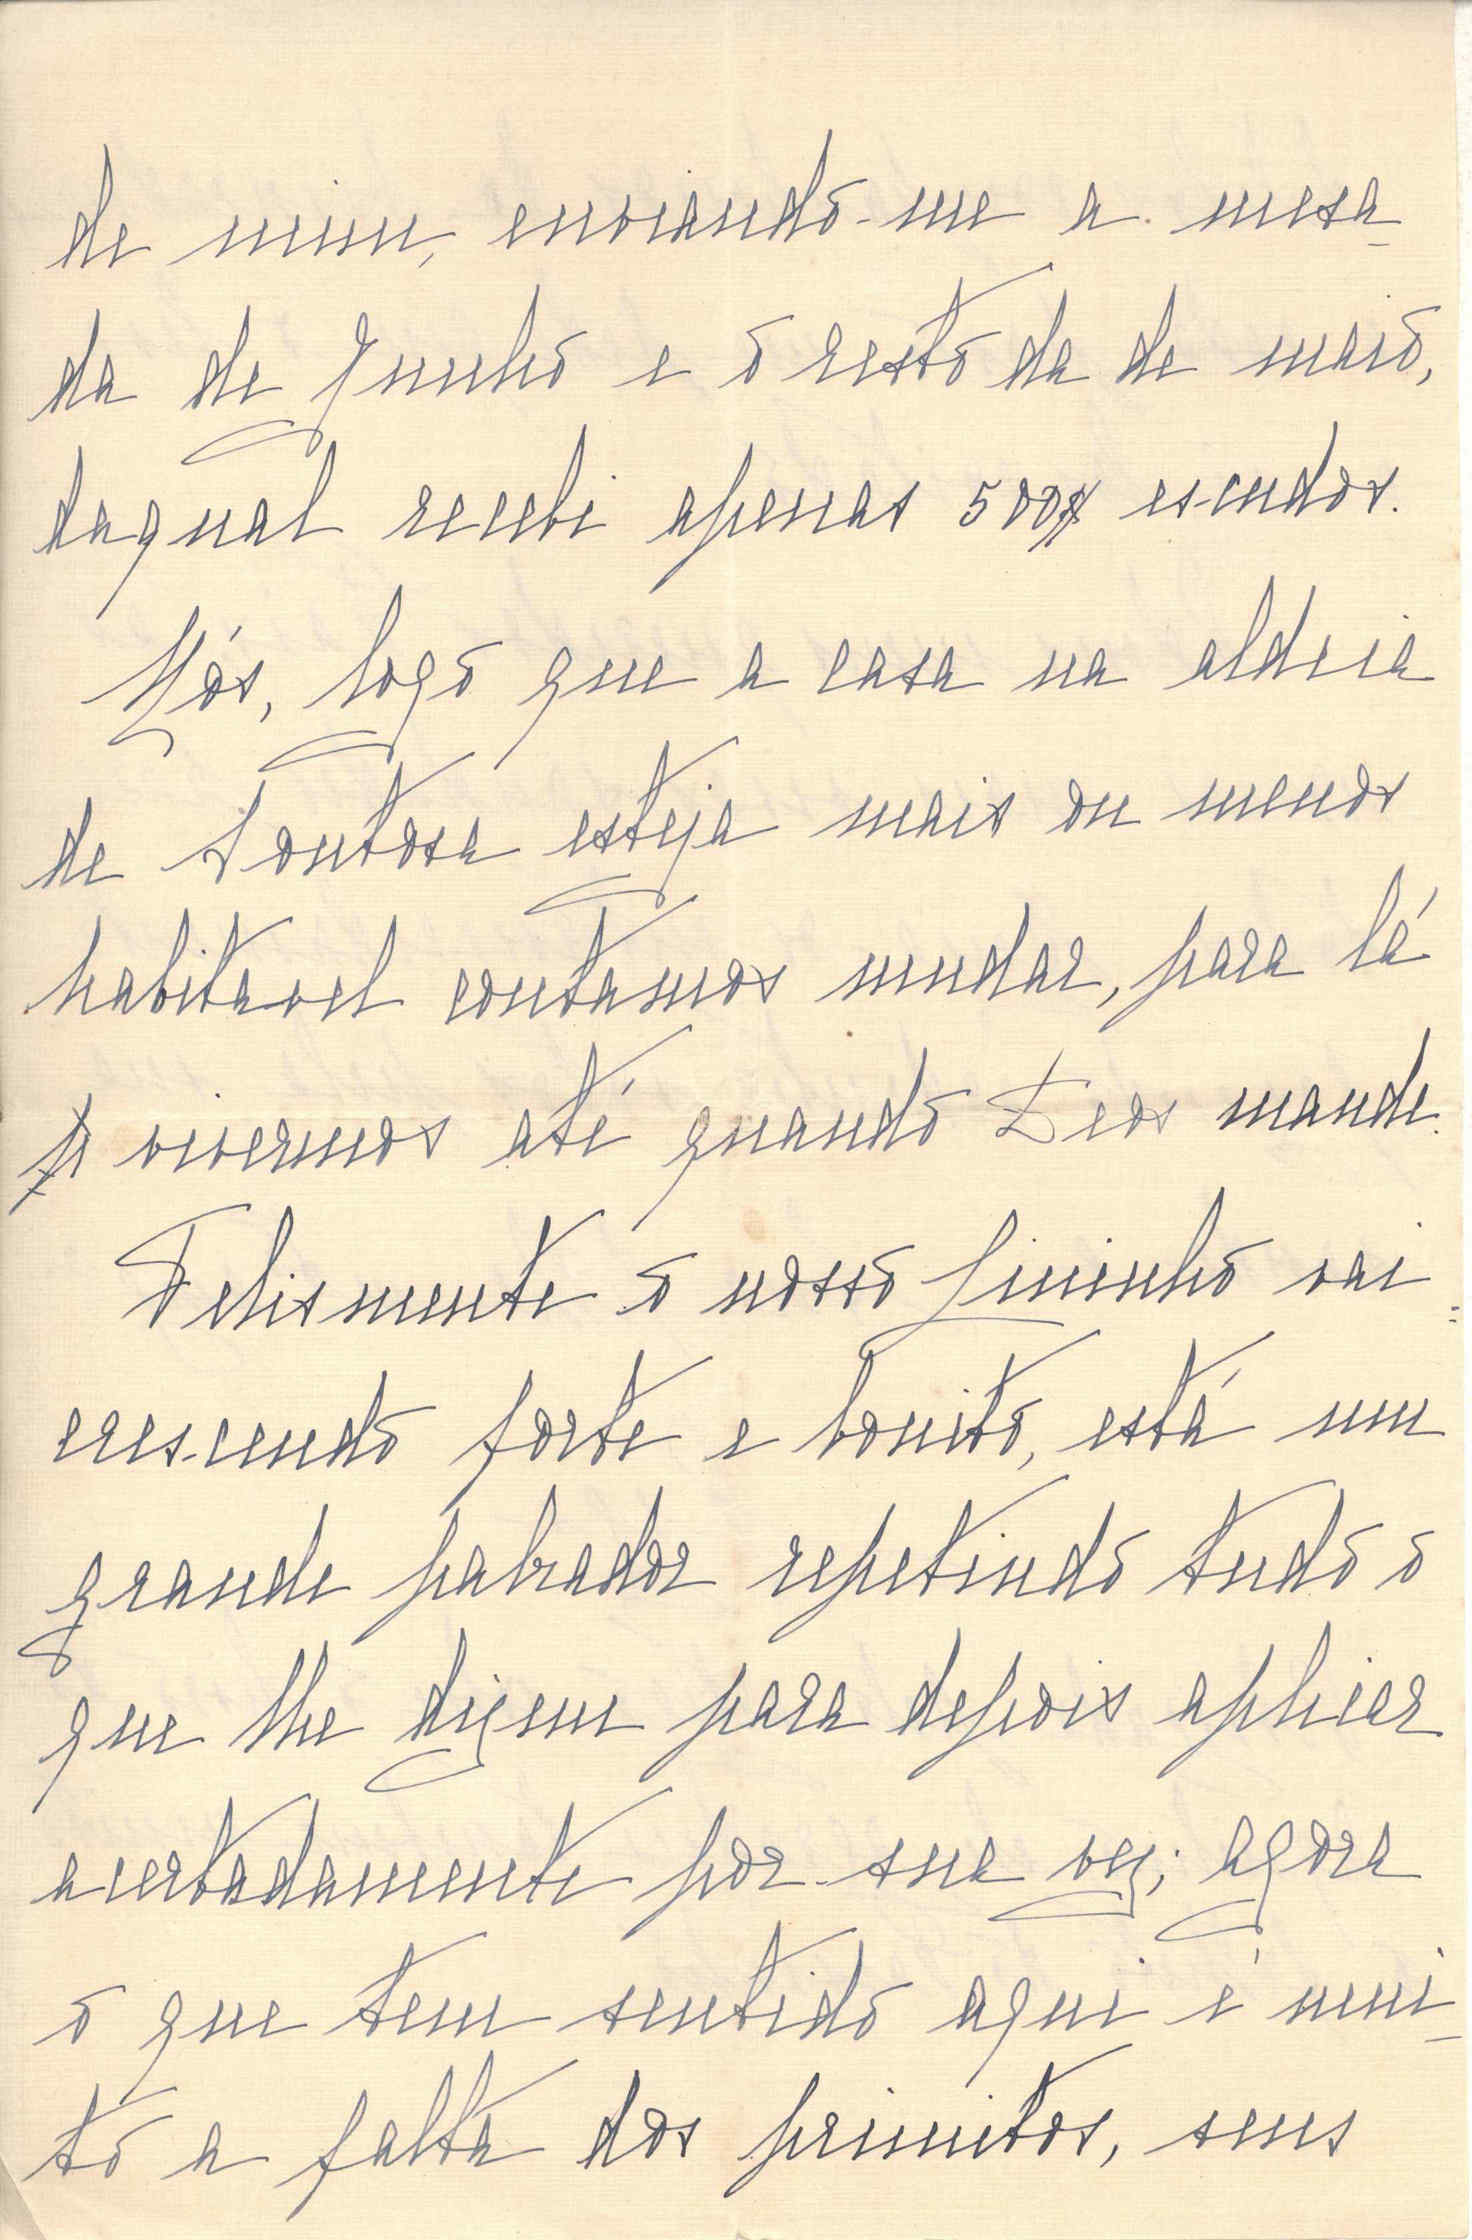 de mim, enviando-me a mesa-
da de Junho e o resto da de maio,
daqual recebi apenas 500$ escudos.
Nós, logo que a casa na aldeia
de Tontosa esteja mais ou menos
habitavel contamos mudar, para lá
vivermos até quando Deos mande.
Felismente o nosso Lininho vai
crescendo forte e bonito, está um
grande palrador repetindo tudo o
que lhe dizem para depois aplicar
acertadamente por sua vez; agora
o que tem sentido aqui é mui-
to a falta dos primitos, seus